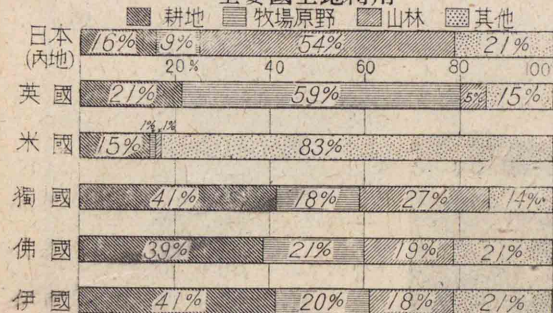 主要國土地利用
耕地 牧場原野 山林 其他
日本 16% 9% 54% 21%
(內地) 20% 40 60 80 100
英國 21% 59% 5% 15%
米國 15% 1% 1% 83%
獨國 41% 18% 27% 14%
佛國 39% 21% 19% 21%
伊國 41% 20% 18% 21%